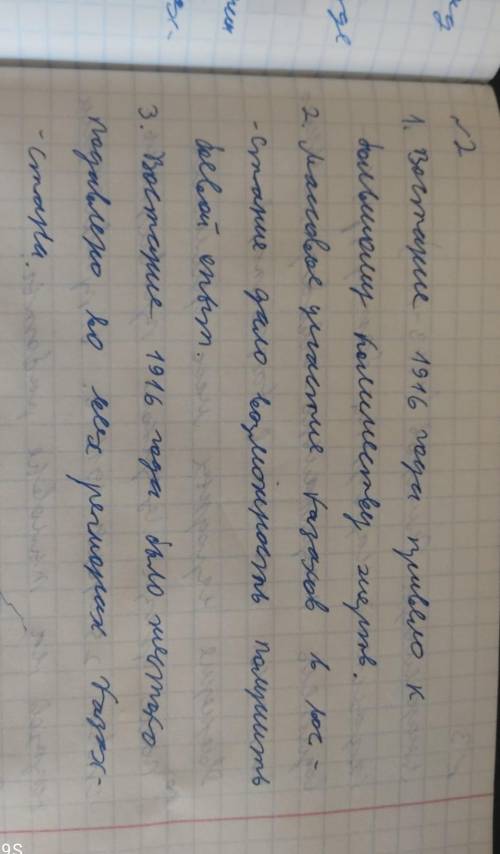 №2
1. Востание 1916 года привело к
большому количеству жертв.
2. Массовые участие казахов в вос-
-стание дало возможность получить
боевой опыт.
3. Востание 1916 года было жестоко
подавлено во всех регионах Казах-
-стана.